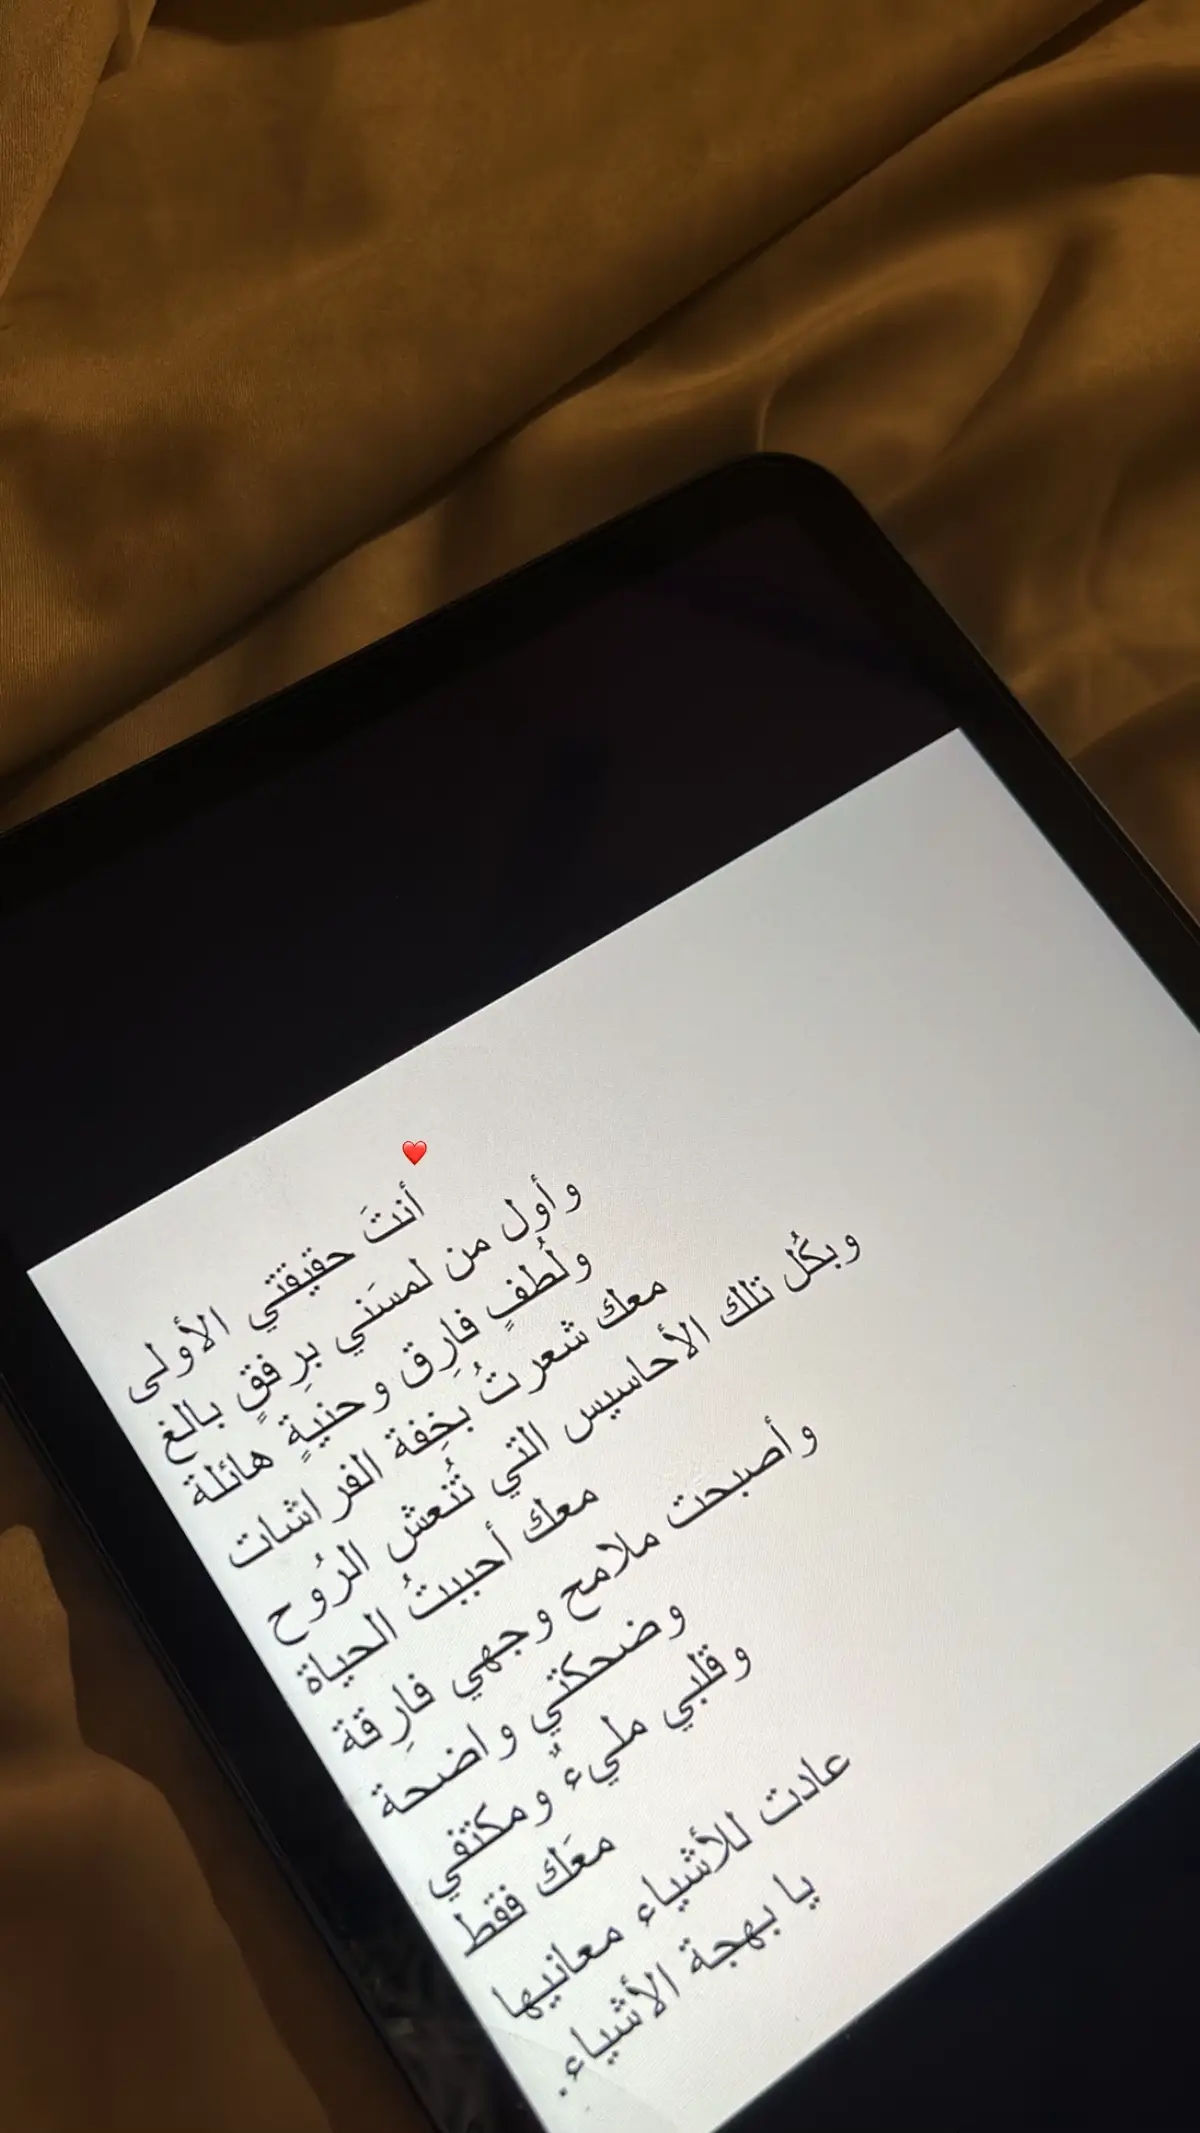 ❤️
أنتَ حقيقتي الأولى
وأول من لمسَني برِفقٍ بالغ
ولُطفٍ فارِق وحنيةٍ هائلة
معك شعرتُ بخِفة الفراشات
وبكُل تلك الأحاسيس التي تُنعش الرُوح
معك أحببتُ الحياة
وأصبحت ملامح وجهي فارِقة
وضحكتي واضحة
وقلبي مليءٌ ومكتفي
معَك فقط
عادت للأشياء معانيها
يا بهجة الأشياء.